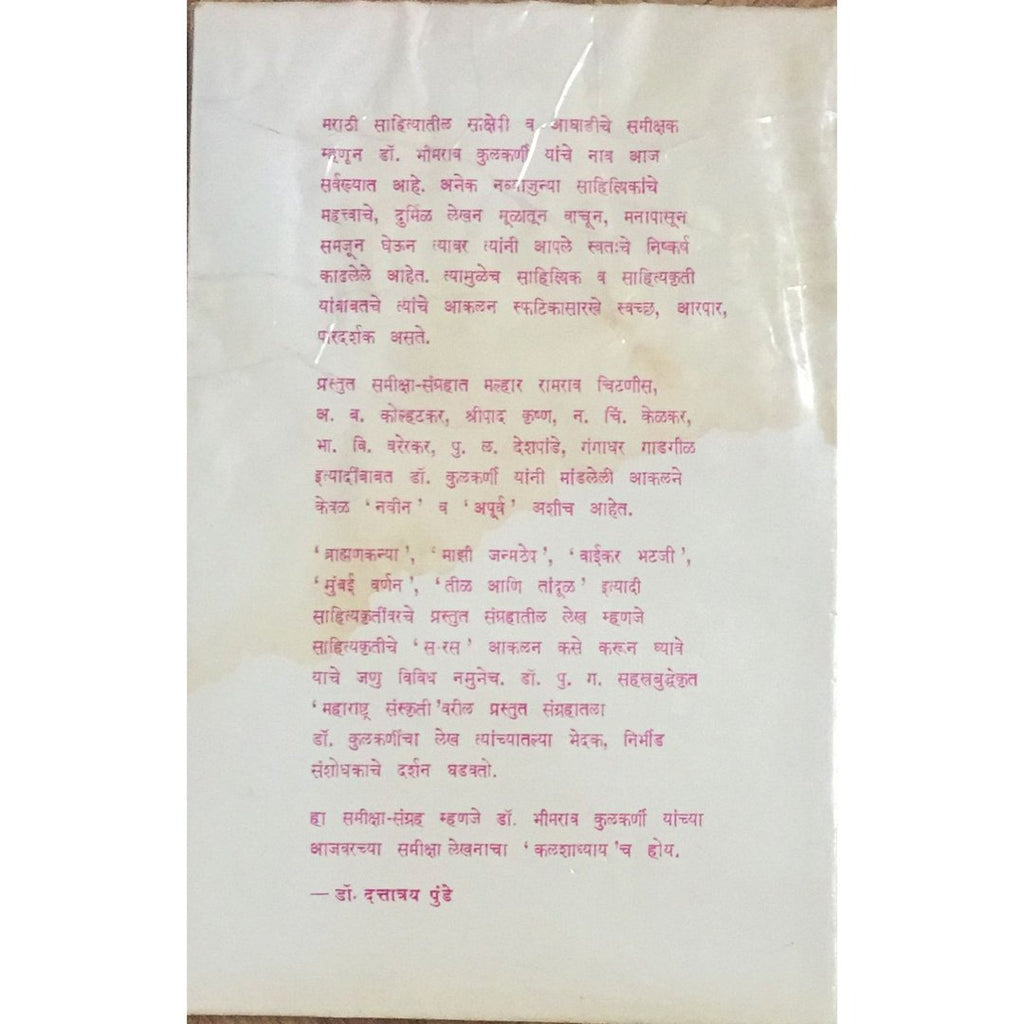 मराठी साहित्यातील साक्षेपी व आघाडीचे समीक्षक
म्हणून डॉ. भीमराव कुलकर्णी यांचे नाव आज
सर्वख्यात आहे. अनेक नव्याजुन्या साहित्यिकांचे
महत्त्वाचे, दुर्मिळ लेखन मूळातून वाचून, मनापासून
समजून घेऊन त्यावर त्यांनी आपले स्वतःचे निष्कर्ष
काढलेले आहेत. त्यामुळेच साहित्यिक व साहित्यकृती
यांबाबतचे त्यांचे आकलन स्फटिकासारखे स्वच्छ, आरपार,
पारदर्शक असते.
प्रस्तुत समीक्षा-संग्रहात मल्हार रामराव चिटणीस,
अ. ब. कोल्हटकर, श्रीपाद कृष्ण, न. चिं. केळकर,
भा. वि. वरेरकर, पु. ल. देशपांडे, गंगाधर गाडगीळ
इत्यादींबाबत डॉ. कुलकर्णी यांनी मांडलेली आकलने
केवळ ' नवीन ' व ' अपूर्व ' अशीच आहेत.
' ब्राह्मणकन्या ', ' माझी जन्मठेप ', ' वाईकर भटजी ',
' मुंबई वर्णन ', ' तीळ आणि तांदूळ ' इत्यादी
साहित्यकृतींवरचे प्रस्तुत संग्रहातील लेख म्हणजे
साहित्यकृतीचे ' स-रस ' आकलन कसे करून घ्यावे
याचे जणु विविध नमुनेच. डॉ. पु. ग. सहस्रबुद्धेकृत
' महाराष्ट्र संस्कृती 'वरील प्रस्तुत संग्रहातला
डॉ. कुलकर्णींचा लेख त्यांच्यातल्या भेदक, निर्भीड
संशोधकाचे दर्शन घडवतो.
हा समीक्षा-संग्रह म्हणजे डॉ. भीमराव कुलकर्णी यांच्या
आजवरच्या समीक्षा लेखनाचा ' कलशाध्याय 'च होय.
— डॉ. दत्तात्रय पुंडे